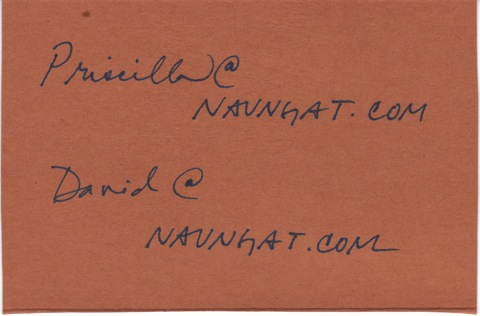 Priscilla@
NAVNGAT.COM
David @
NAVNGAT.COM